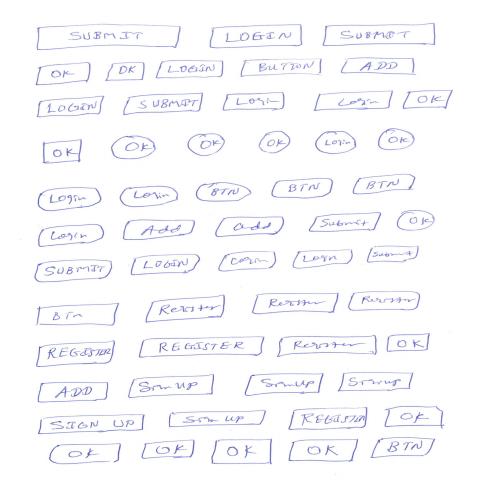 SUBMIT LOGIN SUBMIT
OK OK LOGIN BUTTON ADD
LOGIN SUBMIT Login Login OK
OK OK OK OK Login OK
Login Login BTN BTN BTN
Login Add add Submit OK
SUBMIT LOGIN Login Login Submit
Btn Register Register Register
REGISTER REGISTER Register OK
ADD SignUP SignUp Signup
SIGN UP Sign Up REGISTER OK
OK OK OK OK BTN